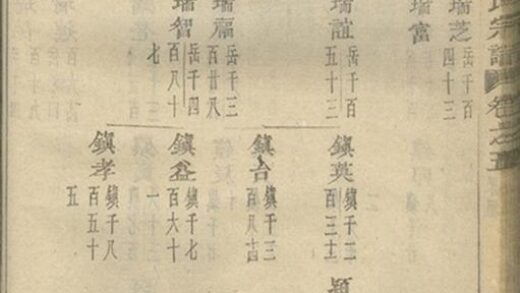 宗譜 卷之五
瑞芝
岳千百
四十三
瑞富
瑞誼
岳千百
五十三
瑞福
岳千三
百廿八
瑞智
岳千四
百八十
七
鎮英
鎮千二
百三十二
鎮吉
鎮千三
百八
鎮益
鎮千七
百六十
一
鎮孝
鎮千八
百五十
五
穎